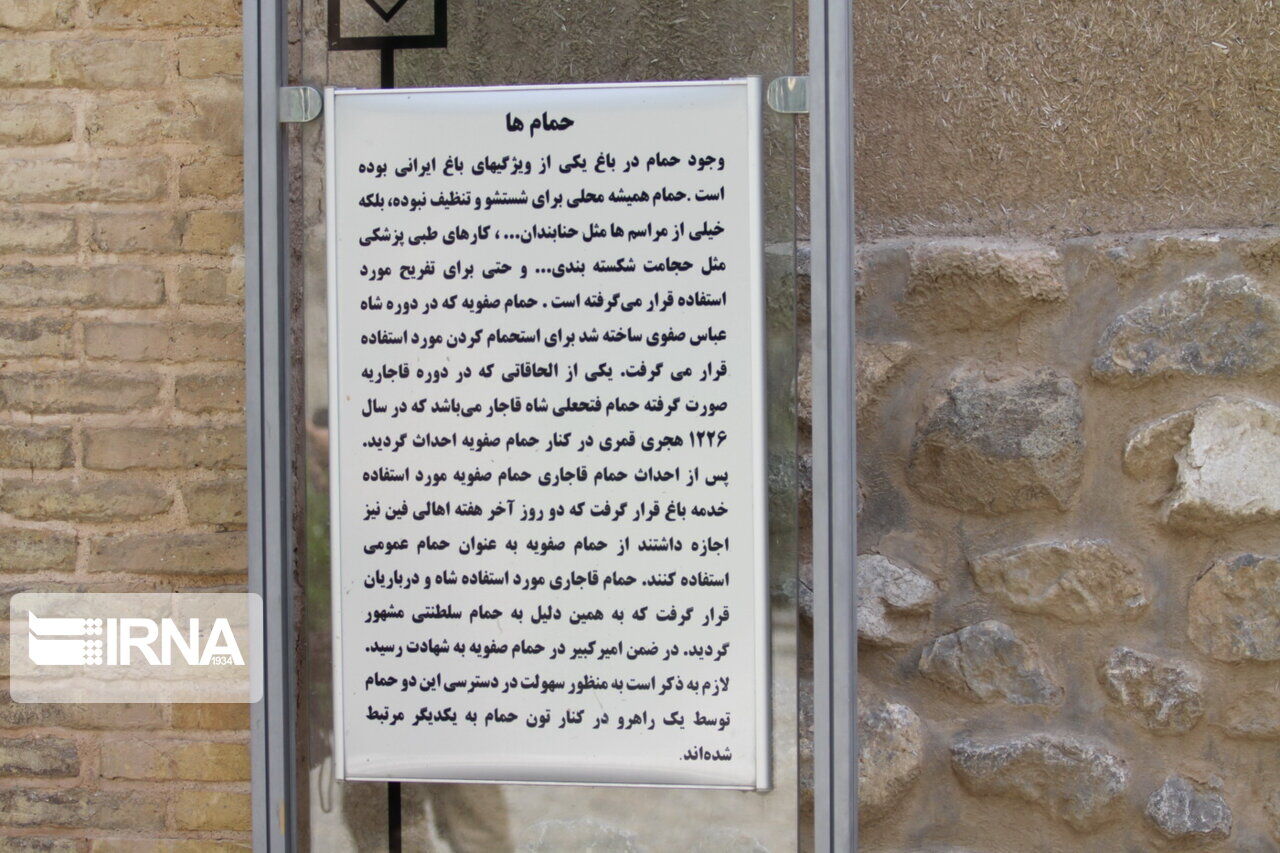 حمام ها
وجود حمام در باغ یکی از ویژگیهای باغ ایرانی بوده
است .حمام همیشه محلی برای شستشو و تنظیف نبوده، بلکه
خیلی از مراسم ها مثل حنابندان... ، کارهای طبی پزشکی
مثل حجامت شکسته بندی... و حتی برای تفریح مورد
استفاده قرار می‌گرفته است . حمام صفویه که در دوره شاه
عباس صفوی ساخته شد برای استحمام کردن مورد استفاده
قرار می گرفت. یکی از الحاقاتی که در دوره قاجاریه
صورت گرفته حمام فتحعلی شاه قاجار می‌باشد که در سال
۱۲۲۶ هجری قمری در کنار حمام صفویه احداث گردید.
پس از احداث حمام قاجاری حمام صفویه مورد استفاده
خدمه باغ قرار گرفت که دو روز آخر هفته اهالی فین نیز
اجازه داشتند از حمام صفویه به عنوان حمام عمومی
استفاده کنند. حمام قاجاری مورد استفاده شاه و درباریان
قرار گرفت که به همین دلیل به حمام سلطنتی مشهور
گردید. در ضمن امیرکبیر در حمام صفویه به شهادت رسید.
لازم به ذکر است به منظور سهولت در دسترسی این دو حمام
توسط یک راهرو در کنار تون حمام به یکدیگر مرتبط
شده‌اند.
IRNA
1934